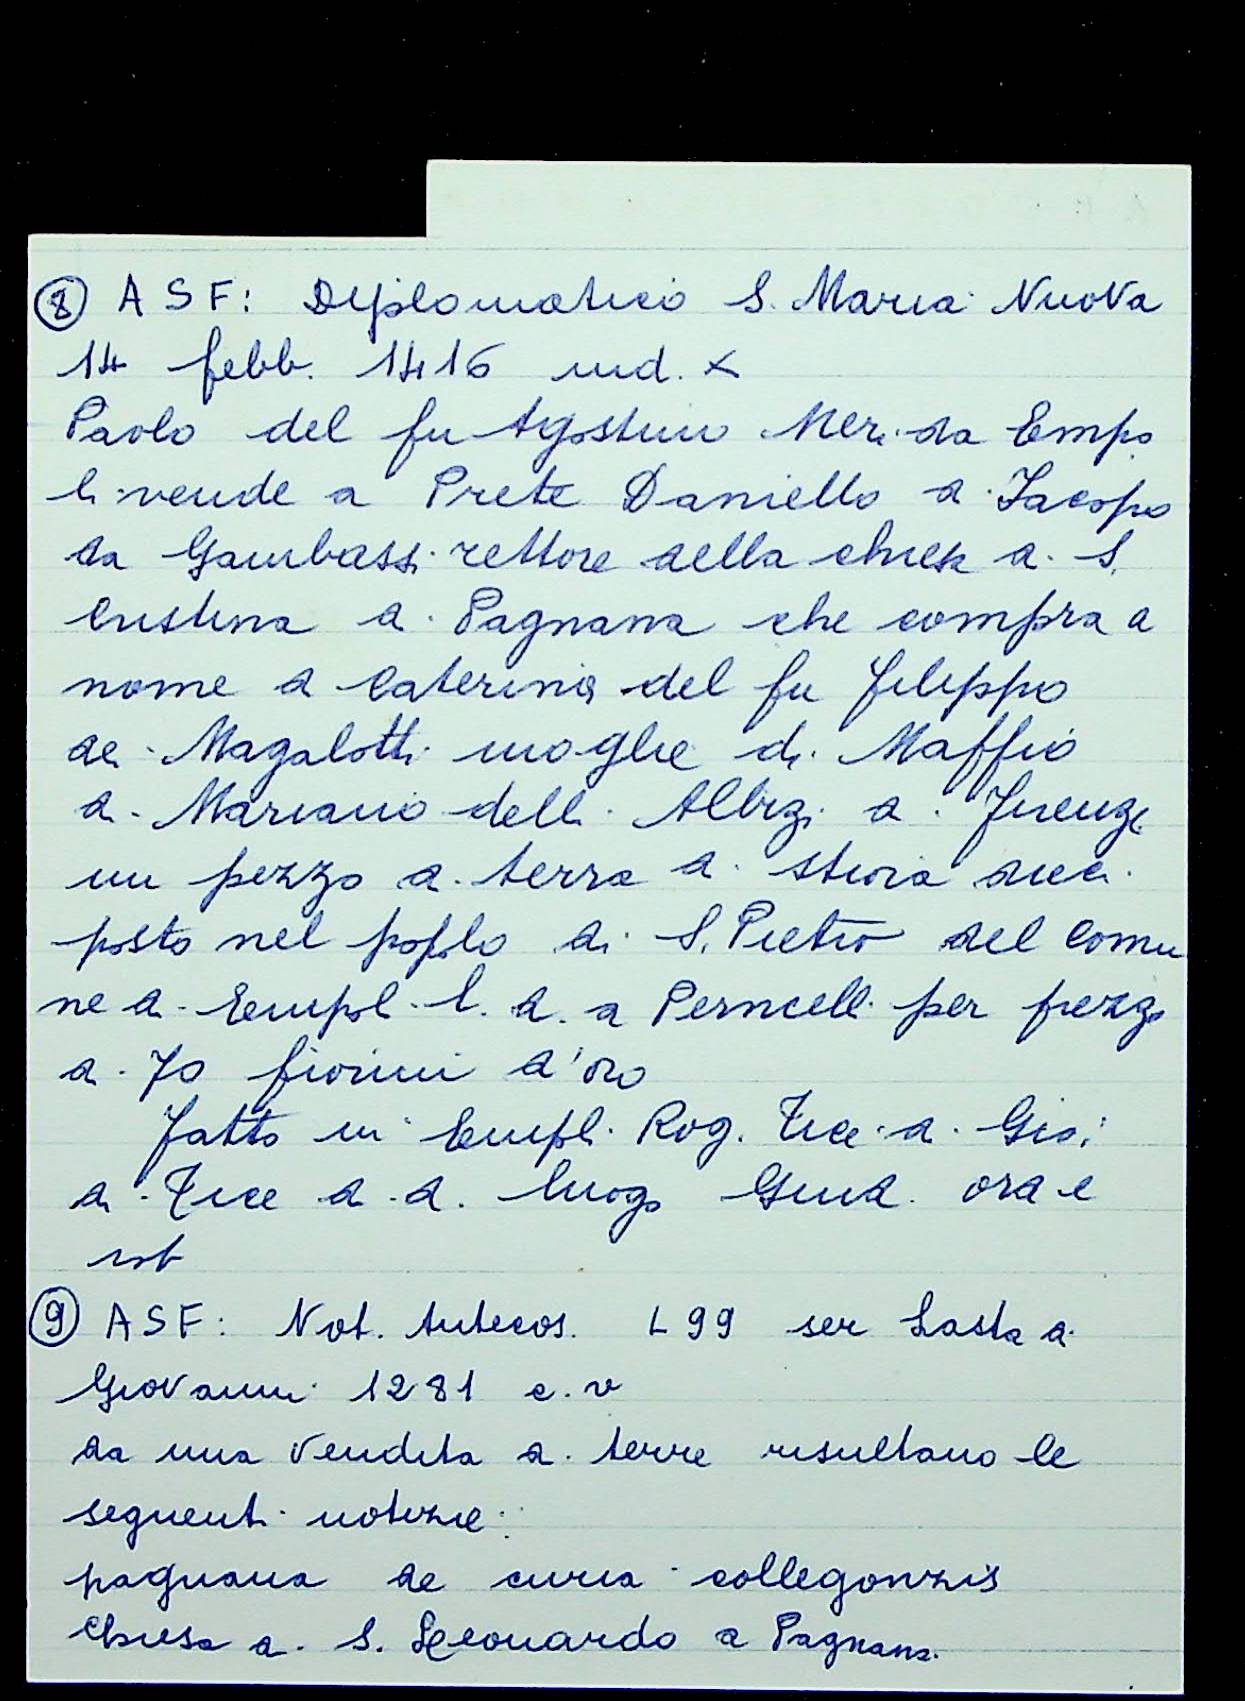 ⑧ ASF: Diplomatico S. Maria Nuova
14 febb. 1416 ind. X
Paolo del fu Agostino Neri da Empo
li vende a Prete Daniello di Jacopo
da Gambassi rettore della chiesa di S.
Cristina a Pagnana che compra a
nome di Caterina del fu Filippo
dei Magalotti moglie di Maffio
di Mariano delli Albizi di Firenze
un pezzo di terra di stiora dieci
posto nel popolo di S. Pietro del Comu
ne di Empoli l. d. a Pernicelli per prezzo
di 70 fiorini d'oro
Fatto in Empoli Rog. di Gio.
di d. d. luogo Giud. ord e
not
⑨ ASF: Not. Antecos. L 99 ser Lasta di
Giovanni 1281 c. v
da una vendita di terre risultano le
seguenti notizie:
pagnana de curia collegonzis
Chiesa di S. Leonardo a Pagnana.